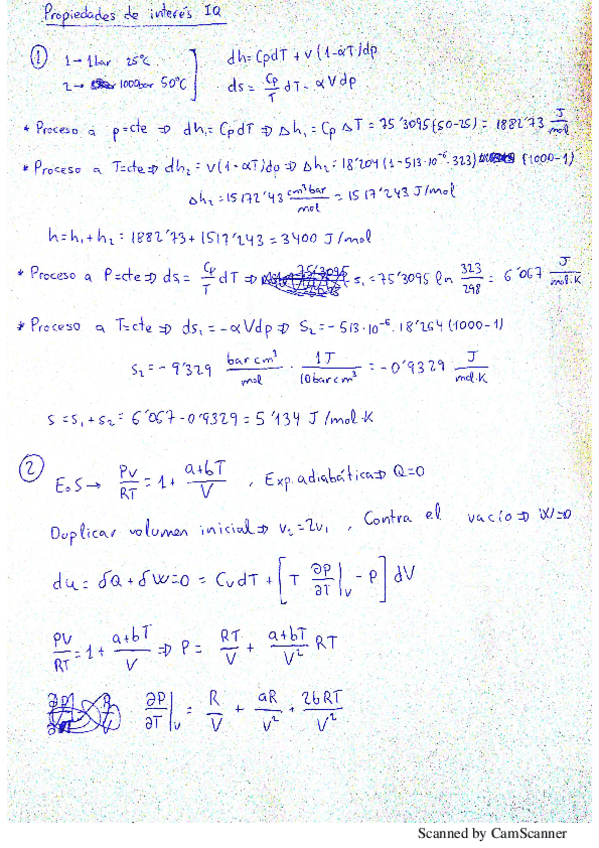 Propiedades de interés IQ
① 1→1bar 25ºC
2→ 1000bar 50ºC
dh = CpdT + V(1-αT)dp
ds = Cp/T dT - αVdp
* Proceso a p=cte ⇒ dh₁ = CpdT ⇒ Δh₁ = Cp ΔT = 75'3095(50-25) = 1882'73 J/mol
* Proceso a T=cte ⇒ dh₂ = V(1-αT)dp ⇒ Δh₂ = 18'204(1-513·10⁻⁶·323) (1000-1)
Δh₂ = 15172'43 cm³bar/mol = 1517'243 J/mol
h = h₁ + h₂ = 1882'73 + 1517'243 = 3400 J/mol
* Proceso a P=cte ⇒ ds₁ = Cp/T dT ⇒ s₁ = 75'3095 ln 323/298 = 6'067 J/mol·K
* Proceso a T=cte ⇒ ds₁ = -αVdp ⇒ S₂ = -513·10⁻⁶·18'204(1000-1)
s₂ = -9'329 bar cm³/mol · 1J/10bar cm³ = -0'9329 · J/mol·K
s = s₁ + s₂ = 6'067 - 0'9329 = 5'134 J/mol·K
② EoS → PV/RT = 1 + a+bT/V , Exp. adiabática ⇒ Q=0
Duplicar volumen inicial ⇒ v₂=2v₁ , Contra el vacío ⇒ W=0
du = δQ + δW = 0 = CvdT + [T ∂P/∂T|v - P] dV
PV/RT = 1 + a+bT/V ⇒ P = RT/V + a+bT/V² RT
∂P/∂T|v = R/V + aR/V² + 2bRT/V²
Scanned by CamScanner